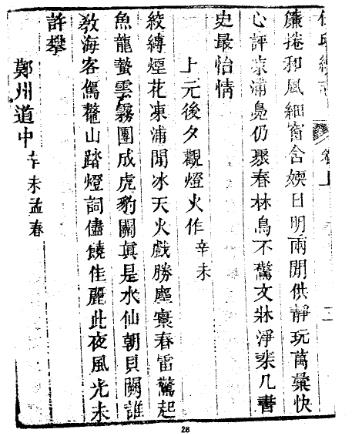 簾捲和風細窗含娛日明兩閒供靜玩萬彙快
心評凍浦鳧仍聚春林鳥不驚文牀淨棐几書
史最怡情
上元後夕觀燈火作辛未
絞縛煙花凍浦開冰天火戲勝塵寰春雷驚起
魚龍蟄雲霧團成虎豹關真是水仙朝貝闕誰
教海客駕鼇山踏燈詞儘饒佳麗此夜風光未
許攀
鄚州道中辛未孟春
28